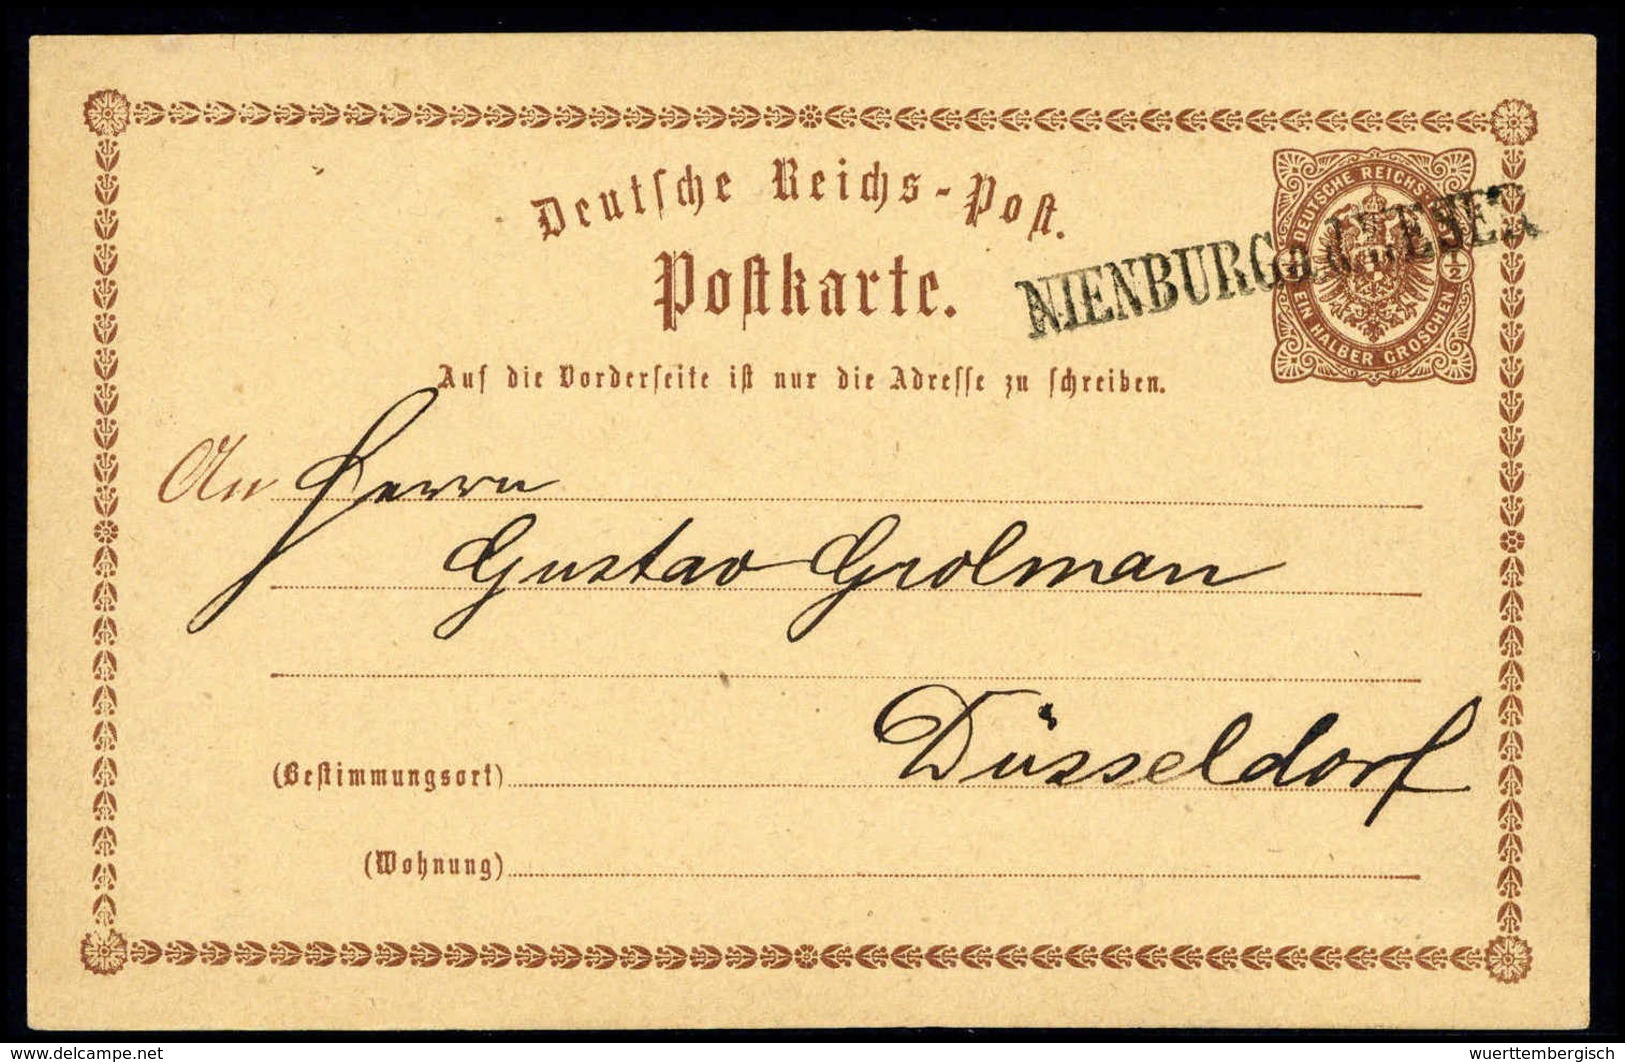 Deutsche Reichs-Post.
Postkarte.
NIENBURG a.d.WESER
DEUTSCHE REICHS
1/2
EIN HALBER GROSCHEN
Auf die Vorderseite ist nur die Adresse zu schreiben.
An Herrn
Gustav Grolman
Düsseldorf
(Bestimmungsort)
(Wohnung)
www.delcampe.net
wuerttembergisch